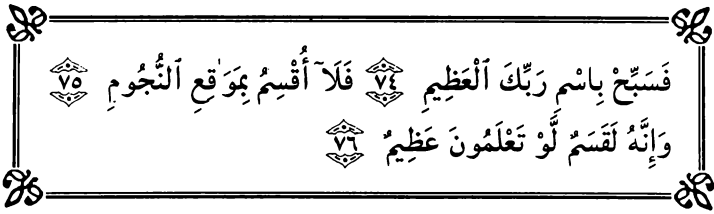 فَسَبِّحْ بِاسْمِ رَبِّكَ ٱلْعَظِيمِ ٧٤ فَلَآ أُقْسِمُ بِمَوَٰقِعِ ٱلنُّجُومِ ٧٥
وَإِنَّهُ لَقَسَمٌ لَّوْ تَعْلَمُونَ عَظِيمٌ ٧٦